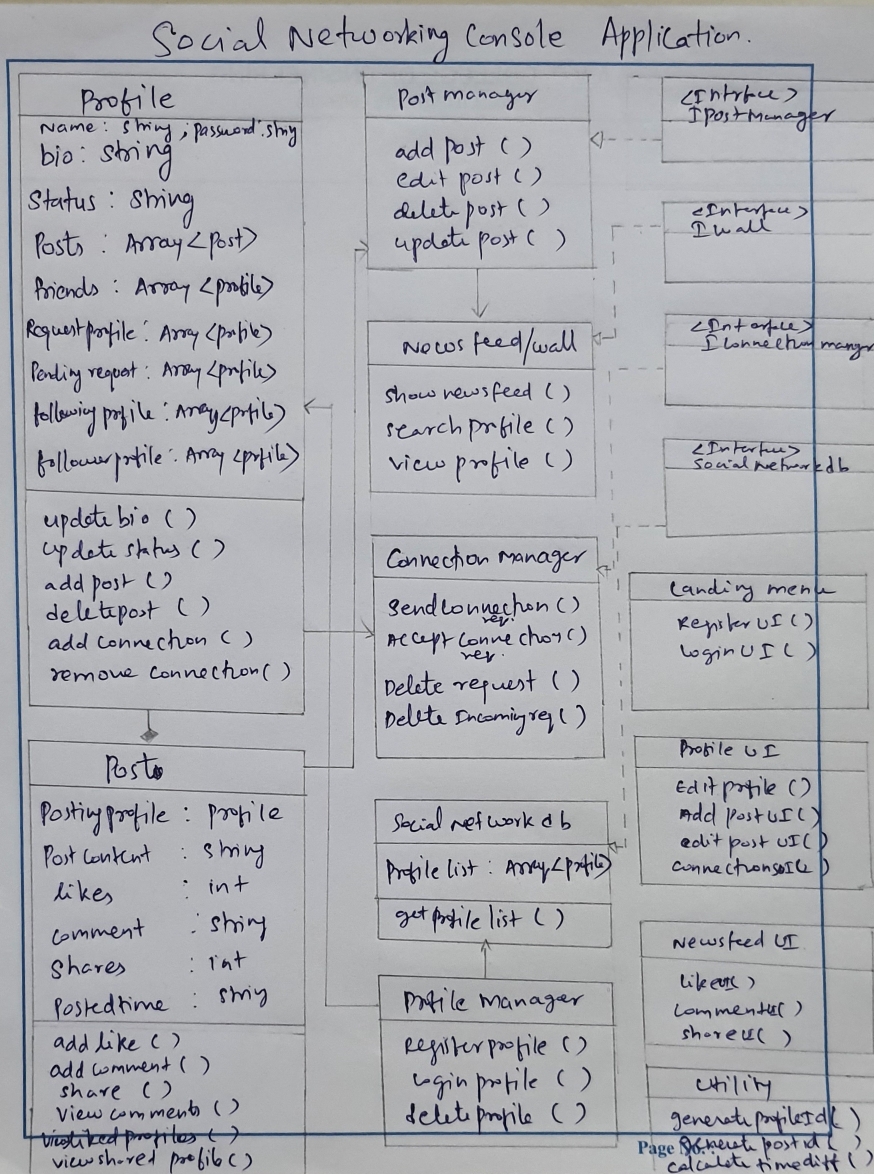 Social Networking Console Application.
Profile
Name : String ; password : string
bio : String
Status : String
Posts : Array <post>
friends : Array <profile>
Request profile : Array <profile>
Pending request : Array <profile>
following profile : Array <profile>
follower profile : Array <profile>
update bio ( )
update status ( )
add post ( )
delete post ( )
add connection ( )
remove connection ( )
Post
Posting profile : profile
Post content : string
likes : int
comment : string
Shares : int
Posted time : string
add like ( )
add comment ( )
share ( )
view comments ( )
view liked profiles ( )
view shared profile ( )
Post manager
add post ( )
edit post ( )
delete post ( )
update post ( )
News feed/wall
show newsfeed ( )
search profile ( )
view profile ( )
Connection Manager
Send connection ( )
req.
Accept connection ( )
req.
Delete request ( )
Delete Incoming req ( )
Social network db
Profile list : Array <profile>
get profile list ( )
Profile manager
Register profile ( )
Login profile ( )
delete profile ( )
<Interface>
I Post Manager
<Interface>
I wall
<Interface>
I Connection manager
<Interface>
Social network db
Landing menu
Register UI ( )
Login UI ( )
Profile UI
Edit profile ( )
Add Post UI ( )
edit post UI ( )
connections UI ( )
Newsfeed UI
like UI ( )
comment UI ( )
share UI ( )
Utility
generate profile Id ( )
generate post id ( )
calculate time diff ( )
Page No.